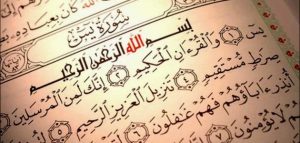 الله كَانَ بِعِبَادِهِ
سُورَةُ يسٓ
بِسْمِ اللَّهِ الرَّحْمَٰنِ الرَّحِيمِ
يسٓ ١ وَالْقُرْءَانِ الْحَكِيمِ ٢ إِنَّكَ لَمِنَ الْمُرْسَلِينَ
صِرَاطٍ مُّسْتَقِيمٍ ٤ تَنزِيلَ الْعَزِيزِ الرَّحِيمِ ٥
أُنذِرَ ءَابَآؤُهُمْ فَهُمْ غَٰفِلُونَ ٦
لَا يُؤْمِنُونَ ٧